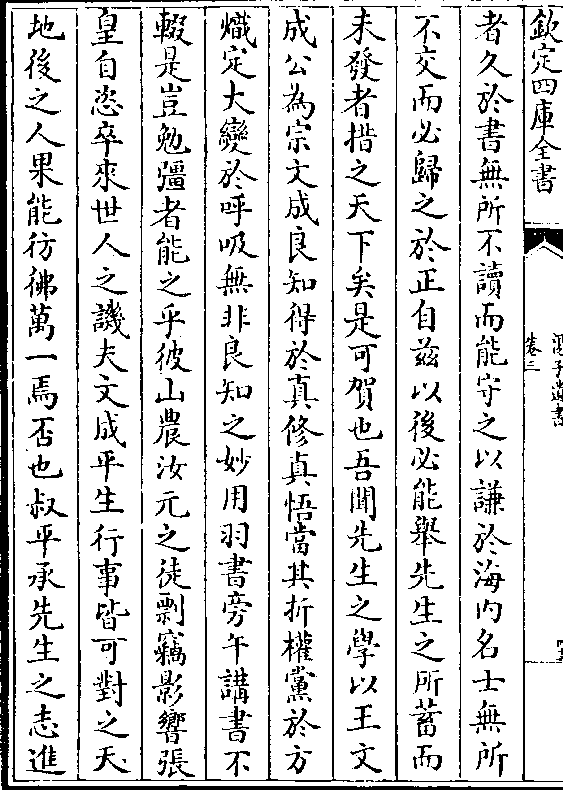 欽定四庫全書
卷三
者久於書無所不讀而能守之以謙於海内名士無所
不交而必歸之於正自兹以後必能舉先生之所蓄而
未發者揩之天下矣是可賀也吾聞先生之學以王文
成公為宗文成良知得於真修真悟當其折權黨於方
熾定大變於呼吸無非良知之妙用羽書旁午講書不
輟是豈勉彊者能之乎彼山農汝元之徒剽竊影響張
皇自恣卒來世人之譏夫文成平生行事皆可對之天
地後之人果能彷彿萬一焉否也叔平承先生之志進